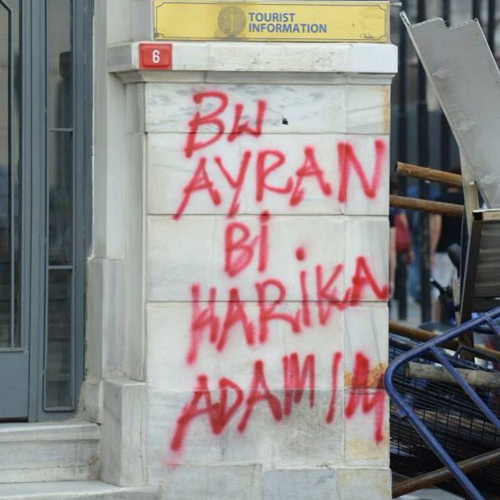 TOURIST
INFORMATION
6
BW
AYRAN
Bi
KARiKA
ADAMIM